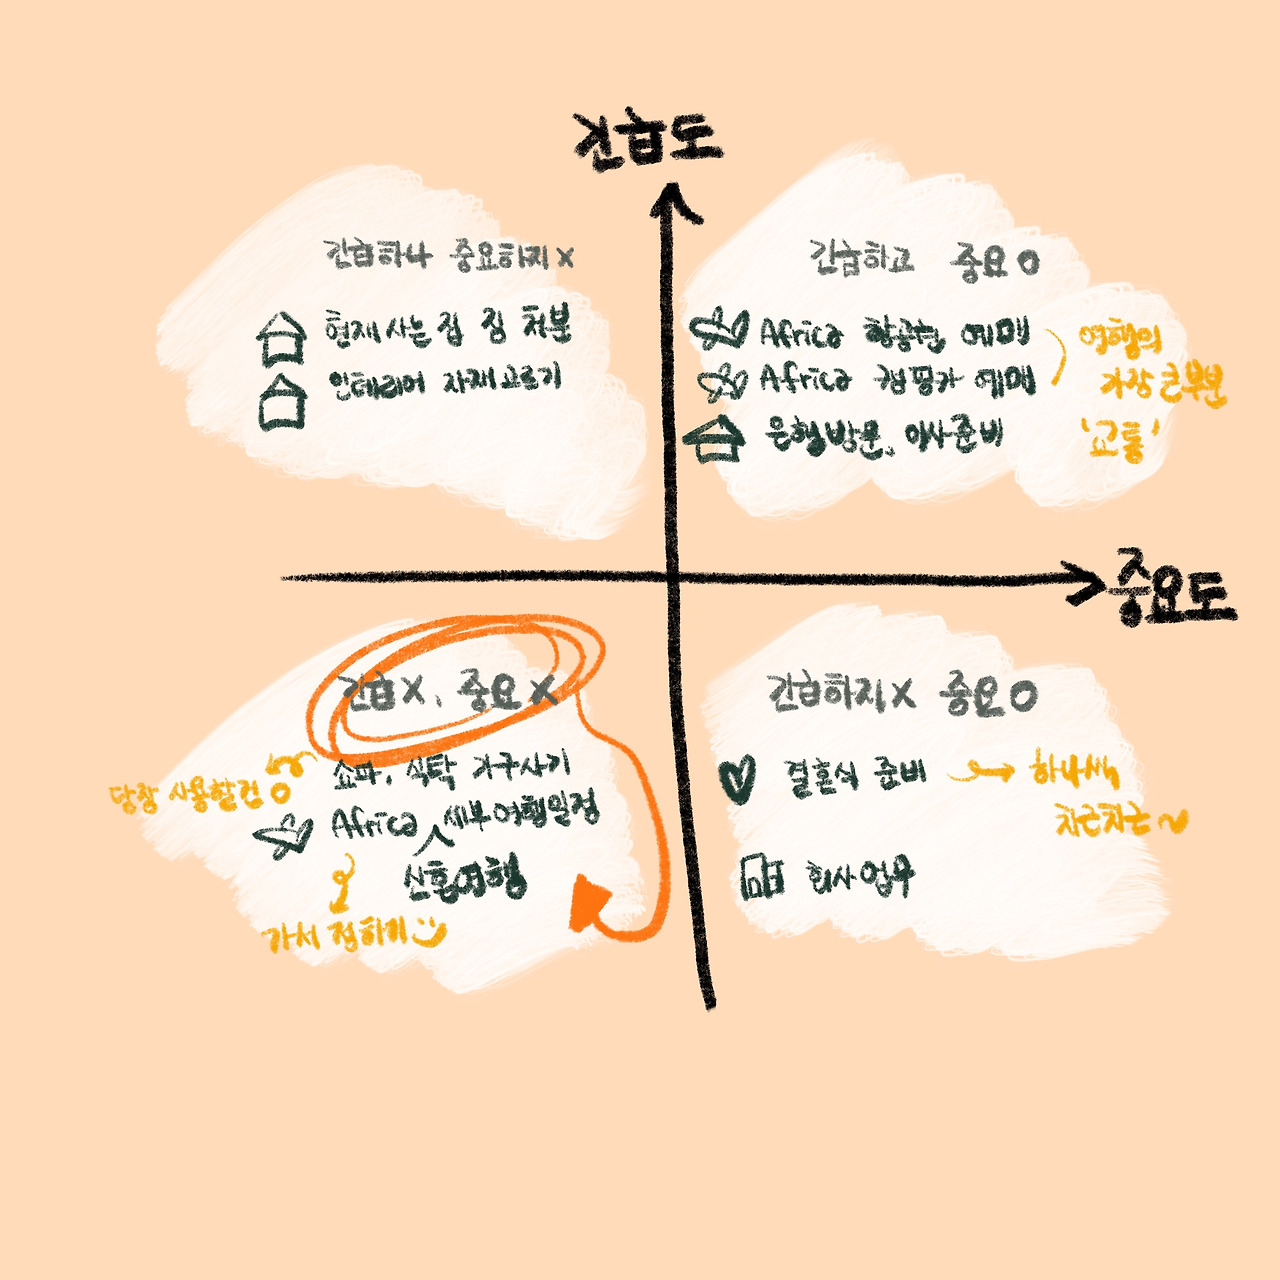 긴급도
긴급하나 중요하지 x
현재 사는 집 짐 처분
인테리어 자재 고르기
긴급하고 중요 O
Africa 항공권 예매
Africa 캠핑카 예매
은행 방문, 이사준비
여행의
가장 큰 부분
'교통'
중요도
긴급 X, 중요 X
쇼파, 식탁 가구사기
당장 사용할건
Africa 세부여행일정
신혼여행
가서 정하기
긴급하지 X 중요 O
결혼식 준비
하나씩
차근차근~
회사 업무